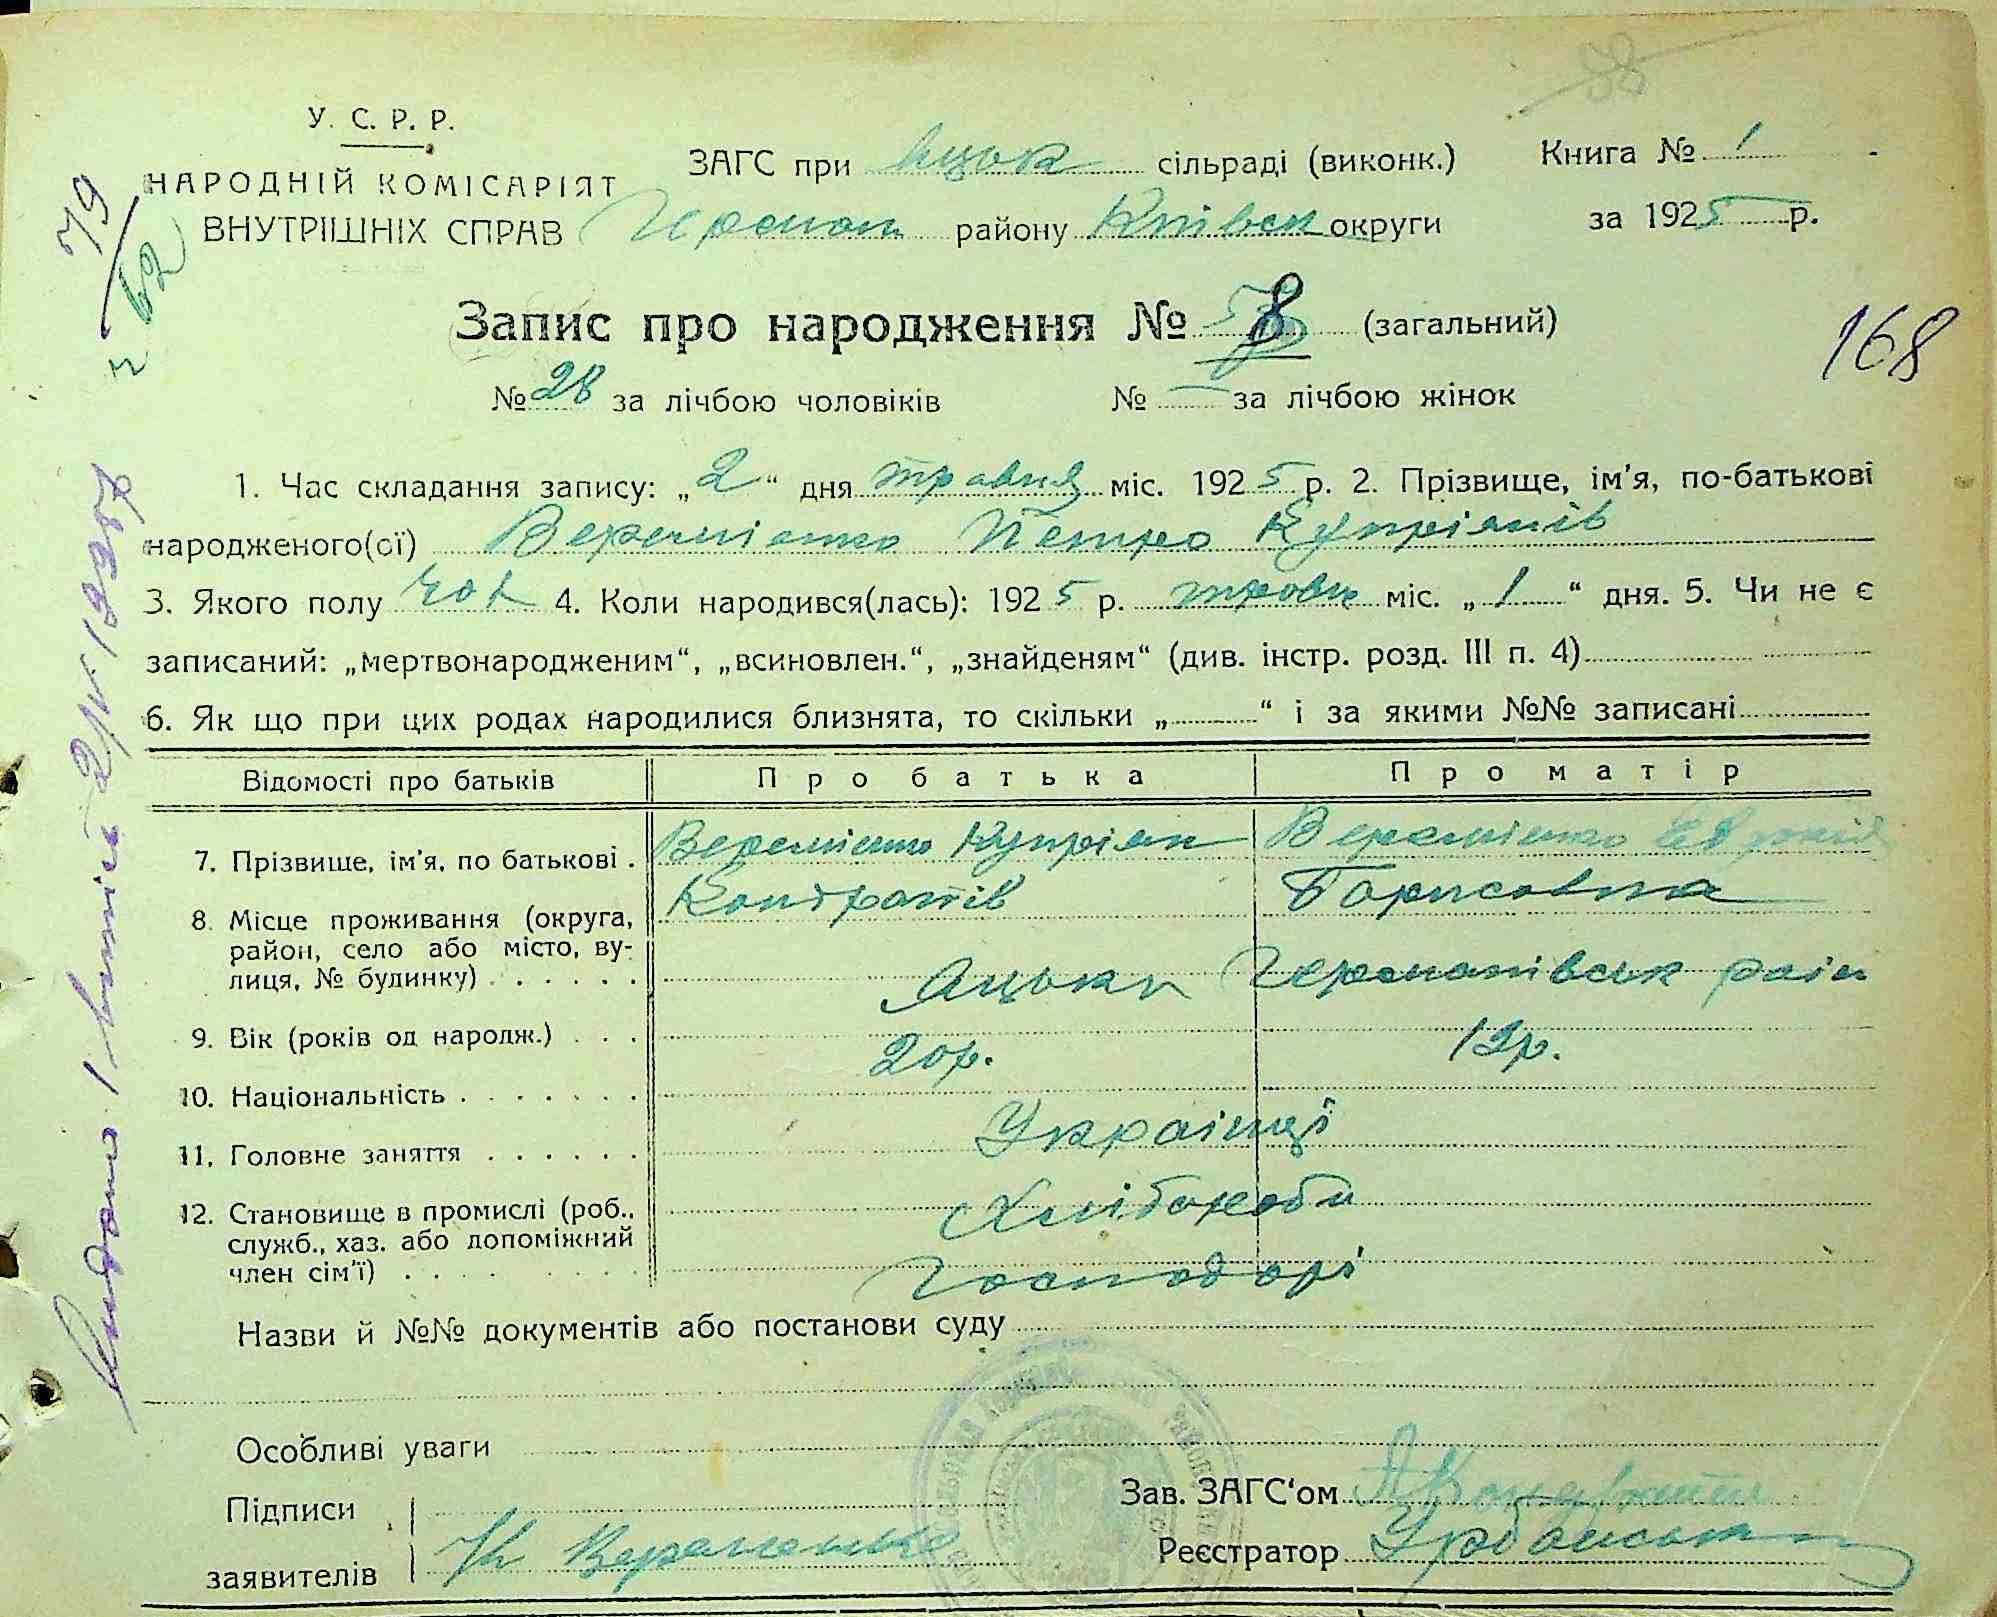 У. С. Р. Р.
НАРОДНІЙ КОМІСАРІЯТ
ВНУТРІШНІХ СПРАВ
ЗАГС при Яцьк сільраді (виконк.) Книга № 1
Герман району Київськ округи за 1925 р.
79
62
Запис про народження № (загальний)
168
№ 28 за лічбою чоловіків № — за лічбою жінок
1. Час складання запису: „2“ дня травня міс. 1925 р. 2. Прізвище, ім'я, по-батькові
народженого(ої) Веремієнко Петро Купріянів
3. Якого полу чол 4. Коли народився(лась): 1925 р. травн міс. „1“ дня. 5. Чи не є
записаний: „мертвонародженим“, „всиновлен.“, „знайденям“ (див. інстр. розд. III п. 4)
6. Як що при цих родах народилися близнята, то скільки „ “ і за якими №№ записані
Відомості про батьків Про батька Про матір
7. Прізвище, ім'я, по батькові . Веремієнко Купріян Веремієнко
Кондратів Борисовна
8. Місце проживання (округа,
район, село або місто, ву-
лиця, № будинку) . . . . . . Яцьки Германівськ раін
9. Вік (років од народж.) . . . 20р. 19р.
10. Національність . . . . . . . Українці
11. Головне заняття . . . . . . Хлібороби
12. Становище в промислі (роб.,
служб., хаз. або допоміжний
член сім'ї) . . . . . . . . Господарі
Назви й №№ документів або постанови суду
Особливі уваги
Підписи
заявителів К Веременко
Зав. ЗАГС'ом
Реєстратор Урбанськ